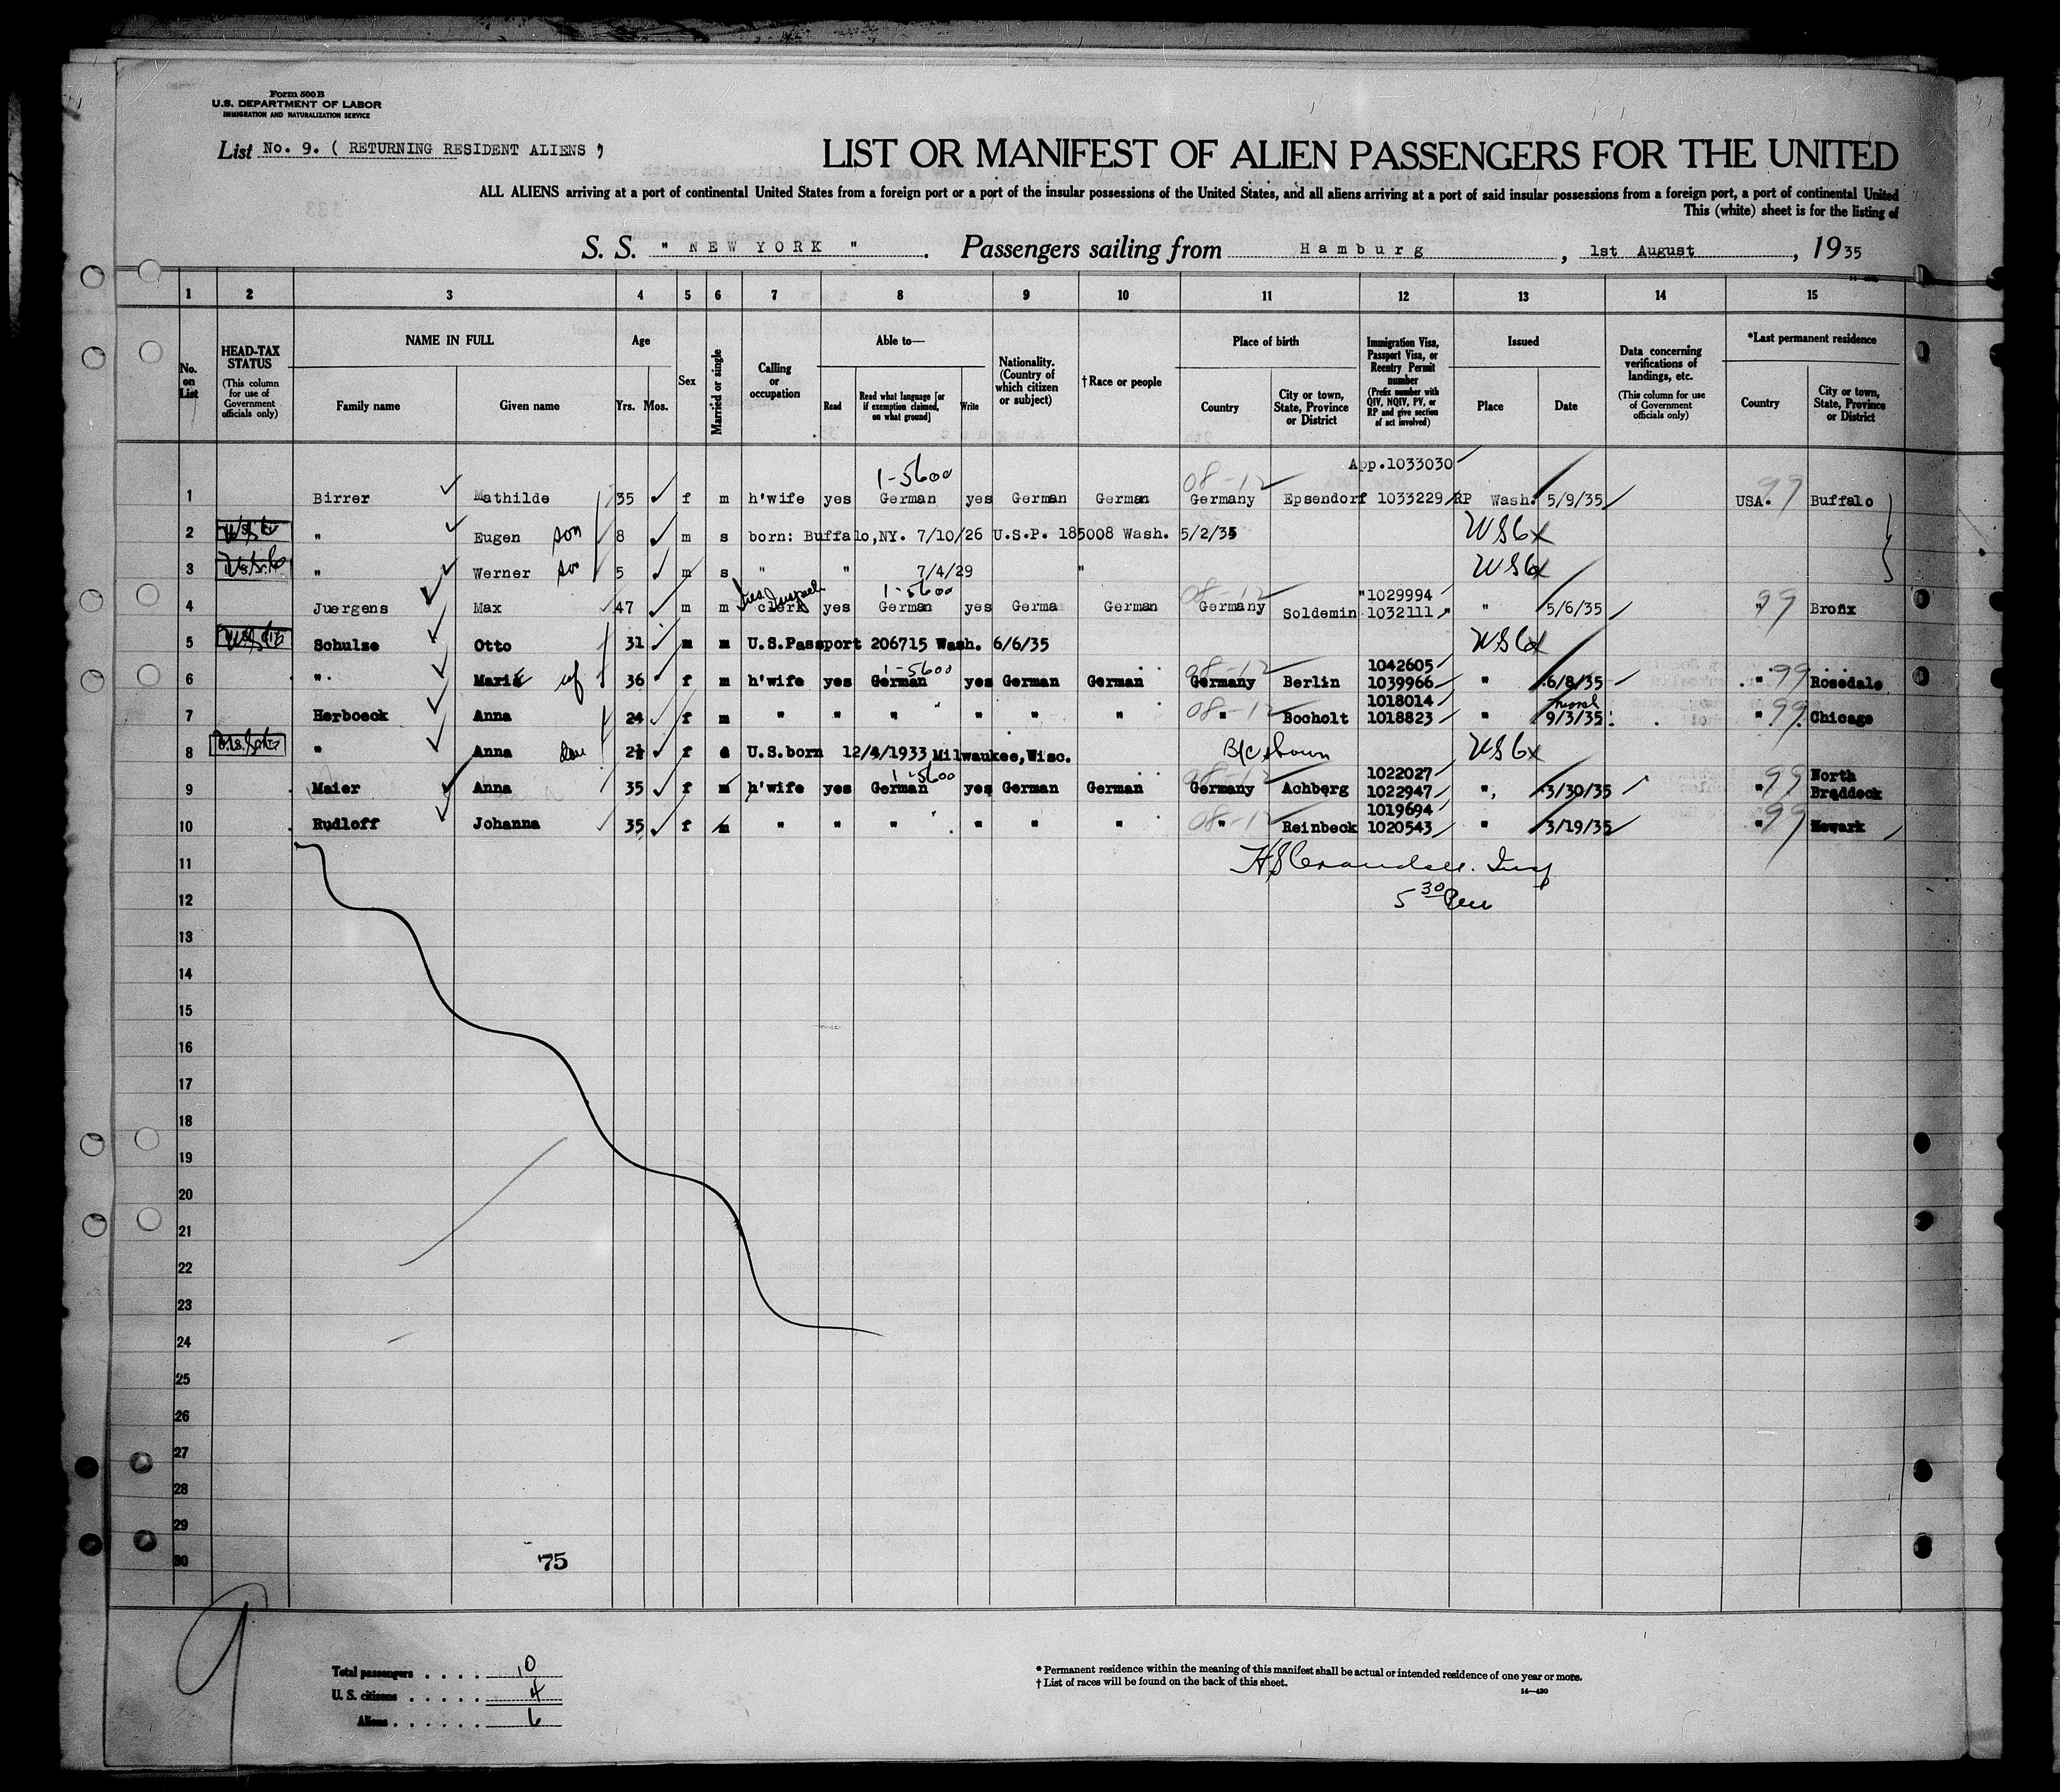 Form 500 B
U.S. DEPARTMENT OF LABOR
IMMIGRATION AND NATURALIZATION SERVICE
List No. 9. ( RETURNING RESIDENT ALIENS )
LIST OR MANIFEST OF ALIEN PASSENGERS FOR THE UNITED
ALL ALIENS arriving at a port of continental United States from a foreign port or a port of the insular possessions of the United States, and all aliens arriving at a port of said insular possessions from a foreign port, a port of continental United
This (white) sheet is for the listing of
S. S. " NEW YORK ". Passengers sailing from Hamburg, 1st August, 1935
1 2 3 4 5 6 7 8 9 10 11 12 13 14 15
No. on List
HEAD-TAX STATUS (This column for use of Government officials only)
NAME IN FULL Family name Given name
Age Yrs. Mos.
Sex
Married or single
Calling or occupation
Able to— Read Read what language [or if exemption claimed, on what ground] Write
Nationality. (Country of which citizen or subject)
†Race or people
Place of birth Country City or town, State, Province or District
Immigration Visa, Passport Visa, or Reentry Permit number (Prefix number with QIV, NQIV, PV, or RP and give section of act involved)
Issued Place Date
Data concerning verifications of landings, etc. (This column for use of Government officials only)
*Last permanent residence Country City or town, State, Province or District
1-5600 08-12 App.1033030
1 Birrer Mathilde 35 f m h'wife yes German yes German German Germany Epsendorf 1033229 RP Wash. 5/9/35 USA. 99 Buffalo
2 " Eugen son 8 m s born: Buffalo,NY. 7/10/26 U.S.P. 185008 Wash. 5/2/35
3 " Werner son 5 m s " " 7/4/29 "
1-5600 08-12 "1029994
4 Juergens Max 47 m m clerk yes German yes Germa German Germany Soldemin 1032111 " " 5/6/35 " 99 Bronx
5 Schulze Otto 31 m m U.S.Passport 206715 Wash. 6/6/35
1-5600 08-12 1042605
6 " Marie wf 36 f m h'wife yes German yes German German Germany Berlin 1039966 " 6/8/35 " 99 Rosedale
08-12 1018014
7 Herboeck Anna 24 f m " " " " " " " Bocholt 1018823 " 9/3/35 " 99 Chicago
8 " Anna dau 2½ f s U.S.born 12/4/1933 Milwaukee,Wisc. B/c shown
1-5600 08-12 1022027
9 Maier Anna 35 f m h'wife yes German yes German German Germany Achberg 1022947 " 3/30/35 " 99 North Braddock
08-12 1019694
10 Rudloff Johanna 35 f m " " " " " " " Reinbeck 1020543 " 3/19/35 " 99 Newark
11
12 5 30 Pm
13
14
15
16
17
18
19
20
21
22
23
24
25
26
27
28
29
30
75
9
Total passengers . . . . 10
U. S. citizens . . . . . 4
Aliens . . . . . . 6
* Permanent residence within the meaning of this manifest shall be actual or intended residence of one year or more.
† List of races will be found on the back of this sheet.
14—430